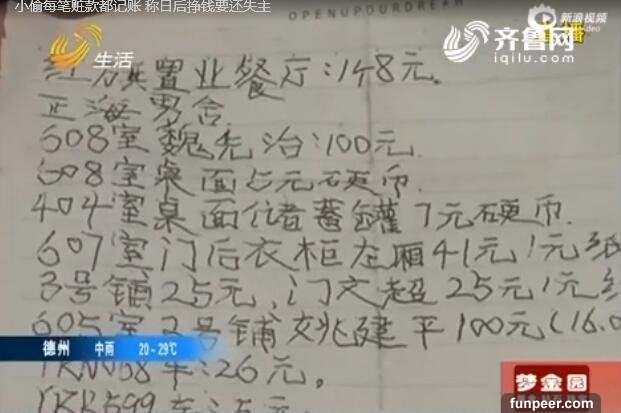 小偷每笔赃款都记账 称日后挣钱要还失主
OPENUPOURDREAM
新浪视频
生活
齐鲁网
iqilu.com
置业餐厅:148元。
正海男舍
608室魏先治:100元
608室桌面占元硬币
404室桌面储者蓄罐7元硬币
607室门后衣柜左厢41元1元纸
3号铺25元,门文超25元1元
605室2号铺姚建平100元(16.0
车:26元。
599车:5元
德州 中雨 20~29℃
梦金园
funpeer.com